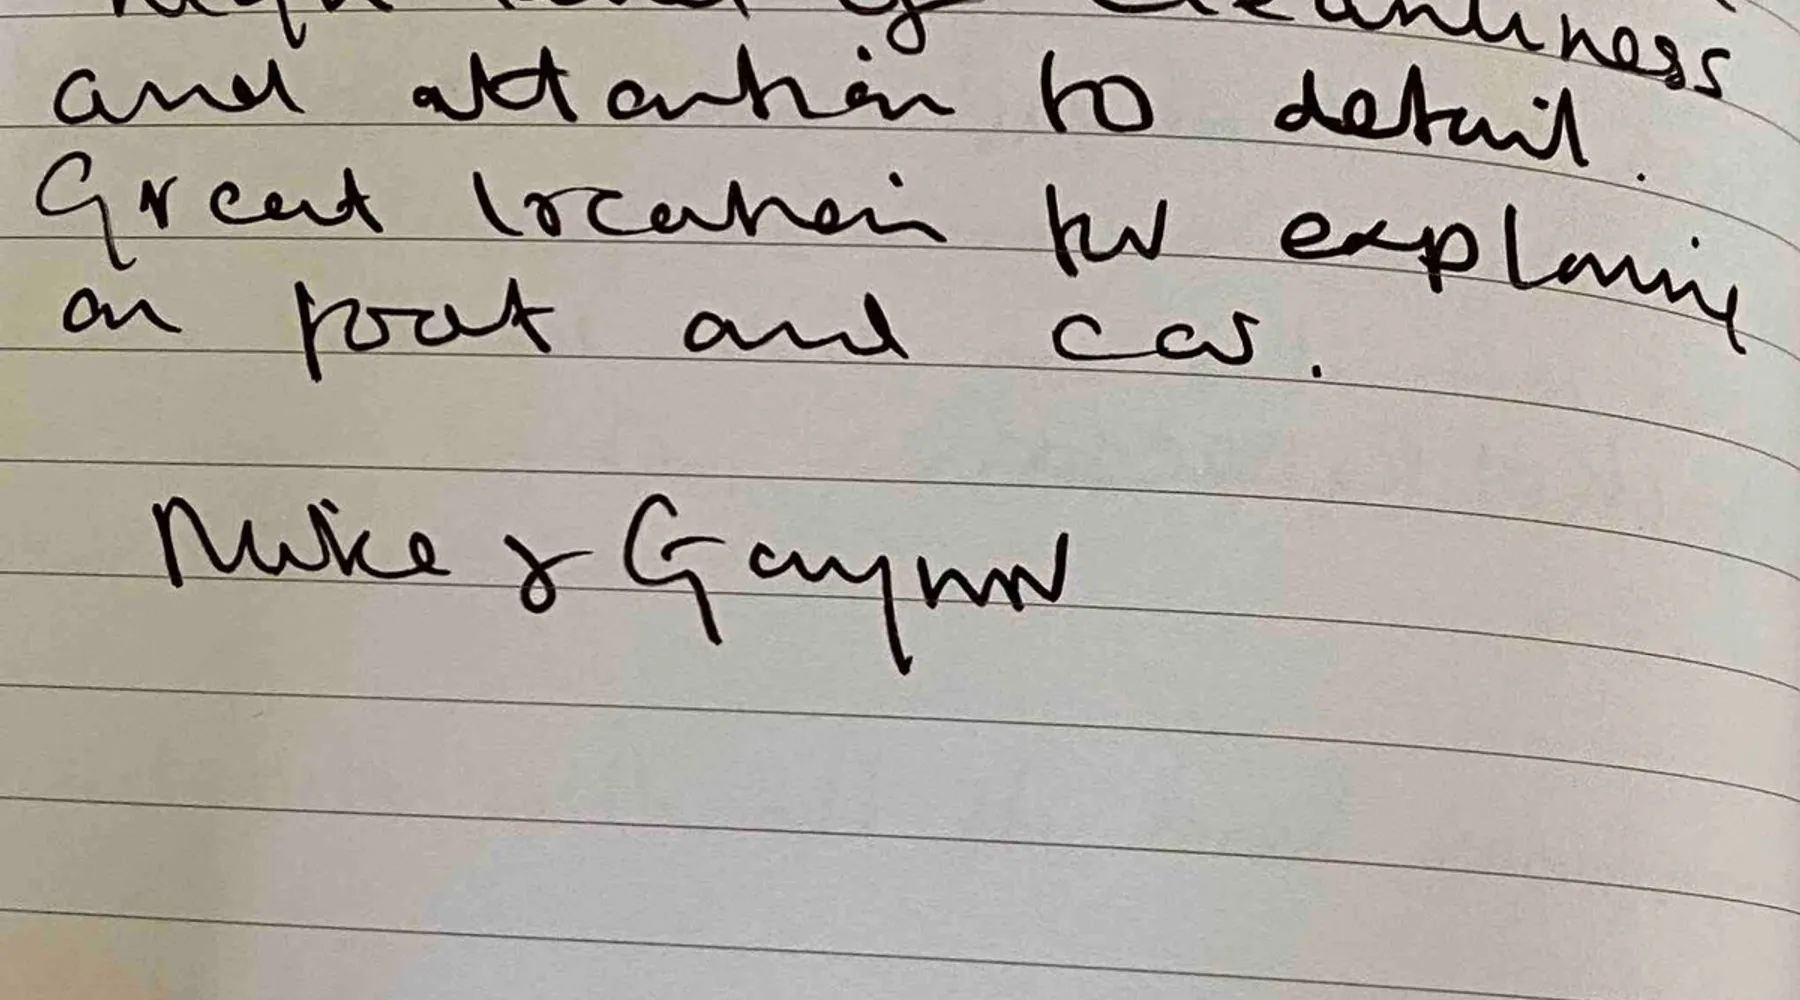 high level of cleanliness
and attention to detail.
Great location for exploring
on foot and car.
Mike & Gaynor